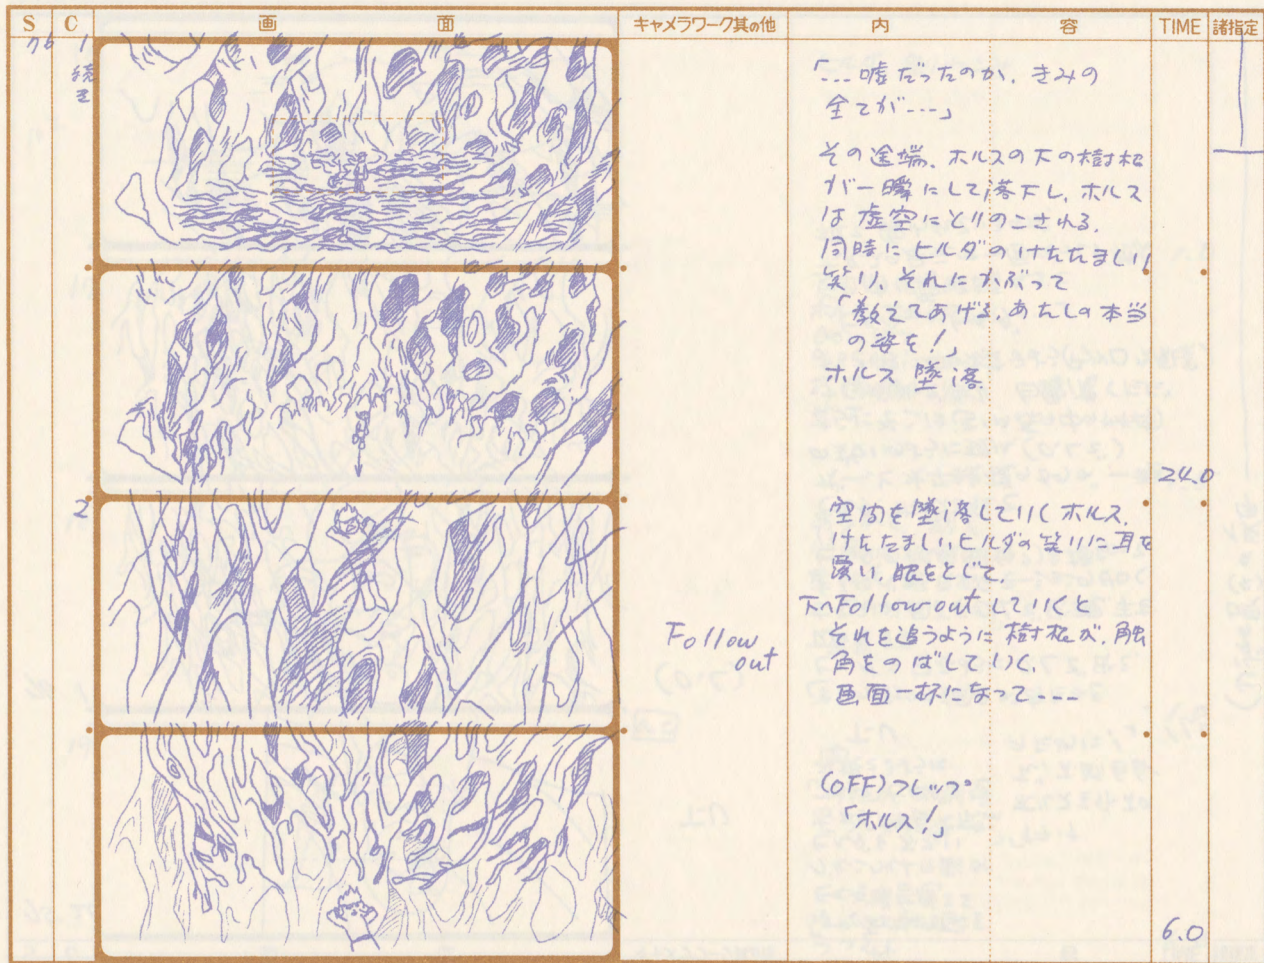 S C 画面 キャメラワーク其の他 内容 TIME 諸指定
76 1
続き
「…嘘だったのか、きみの
全てが…」
その途端、ホルスの下の樹根
が一瞬にして落下し、ホルス
は虚空にとりのこされる。
同時にヒルダのけたたましい
笑い、それにかぶって
「教えてあげる、あたしの本当
の姿を!」
ホルス 墜落
24.0
2
空間を墜落していくホルス、
けたたましいヒルダの笑いに耳を
覆い、眼をとじて。
下へFollow outしていくと
それを追うように樹根が、触
角をのばしていく、
画面一杯になって……
Follow
out
(OFF)フレップ
「ホルス!」
6.0